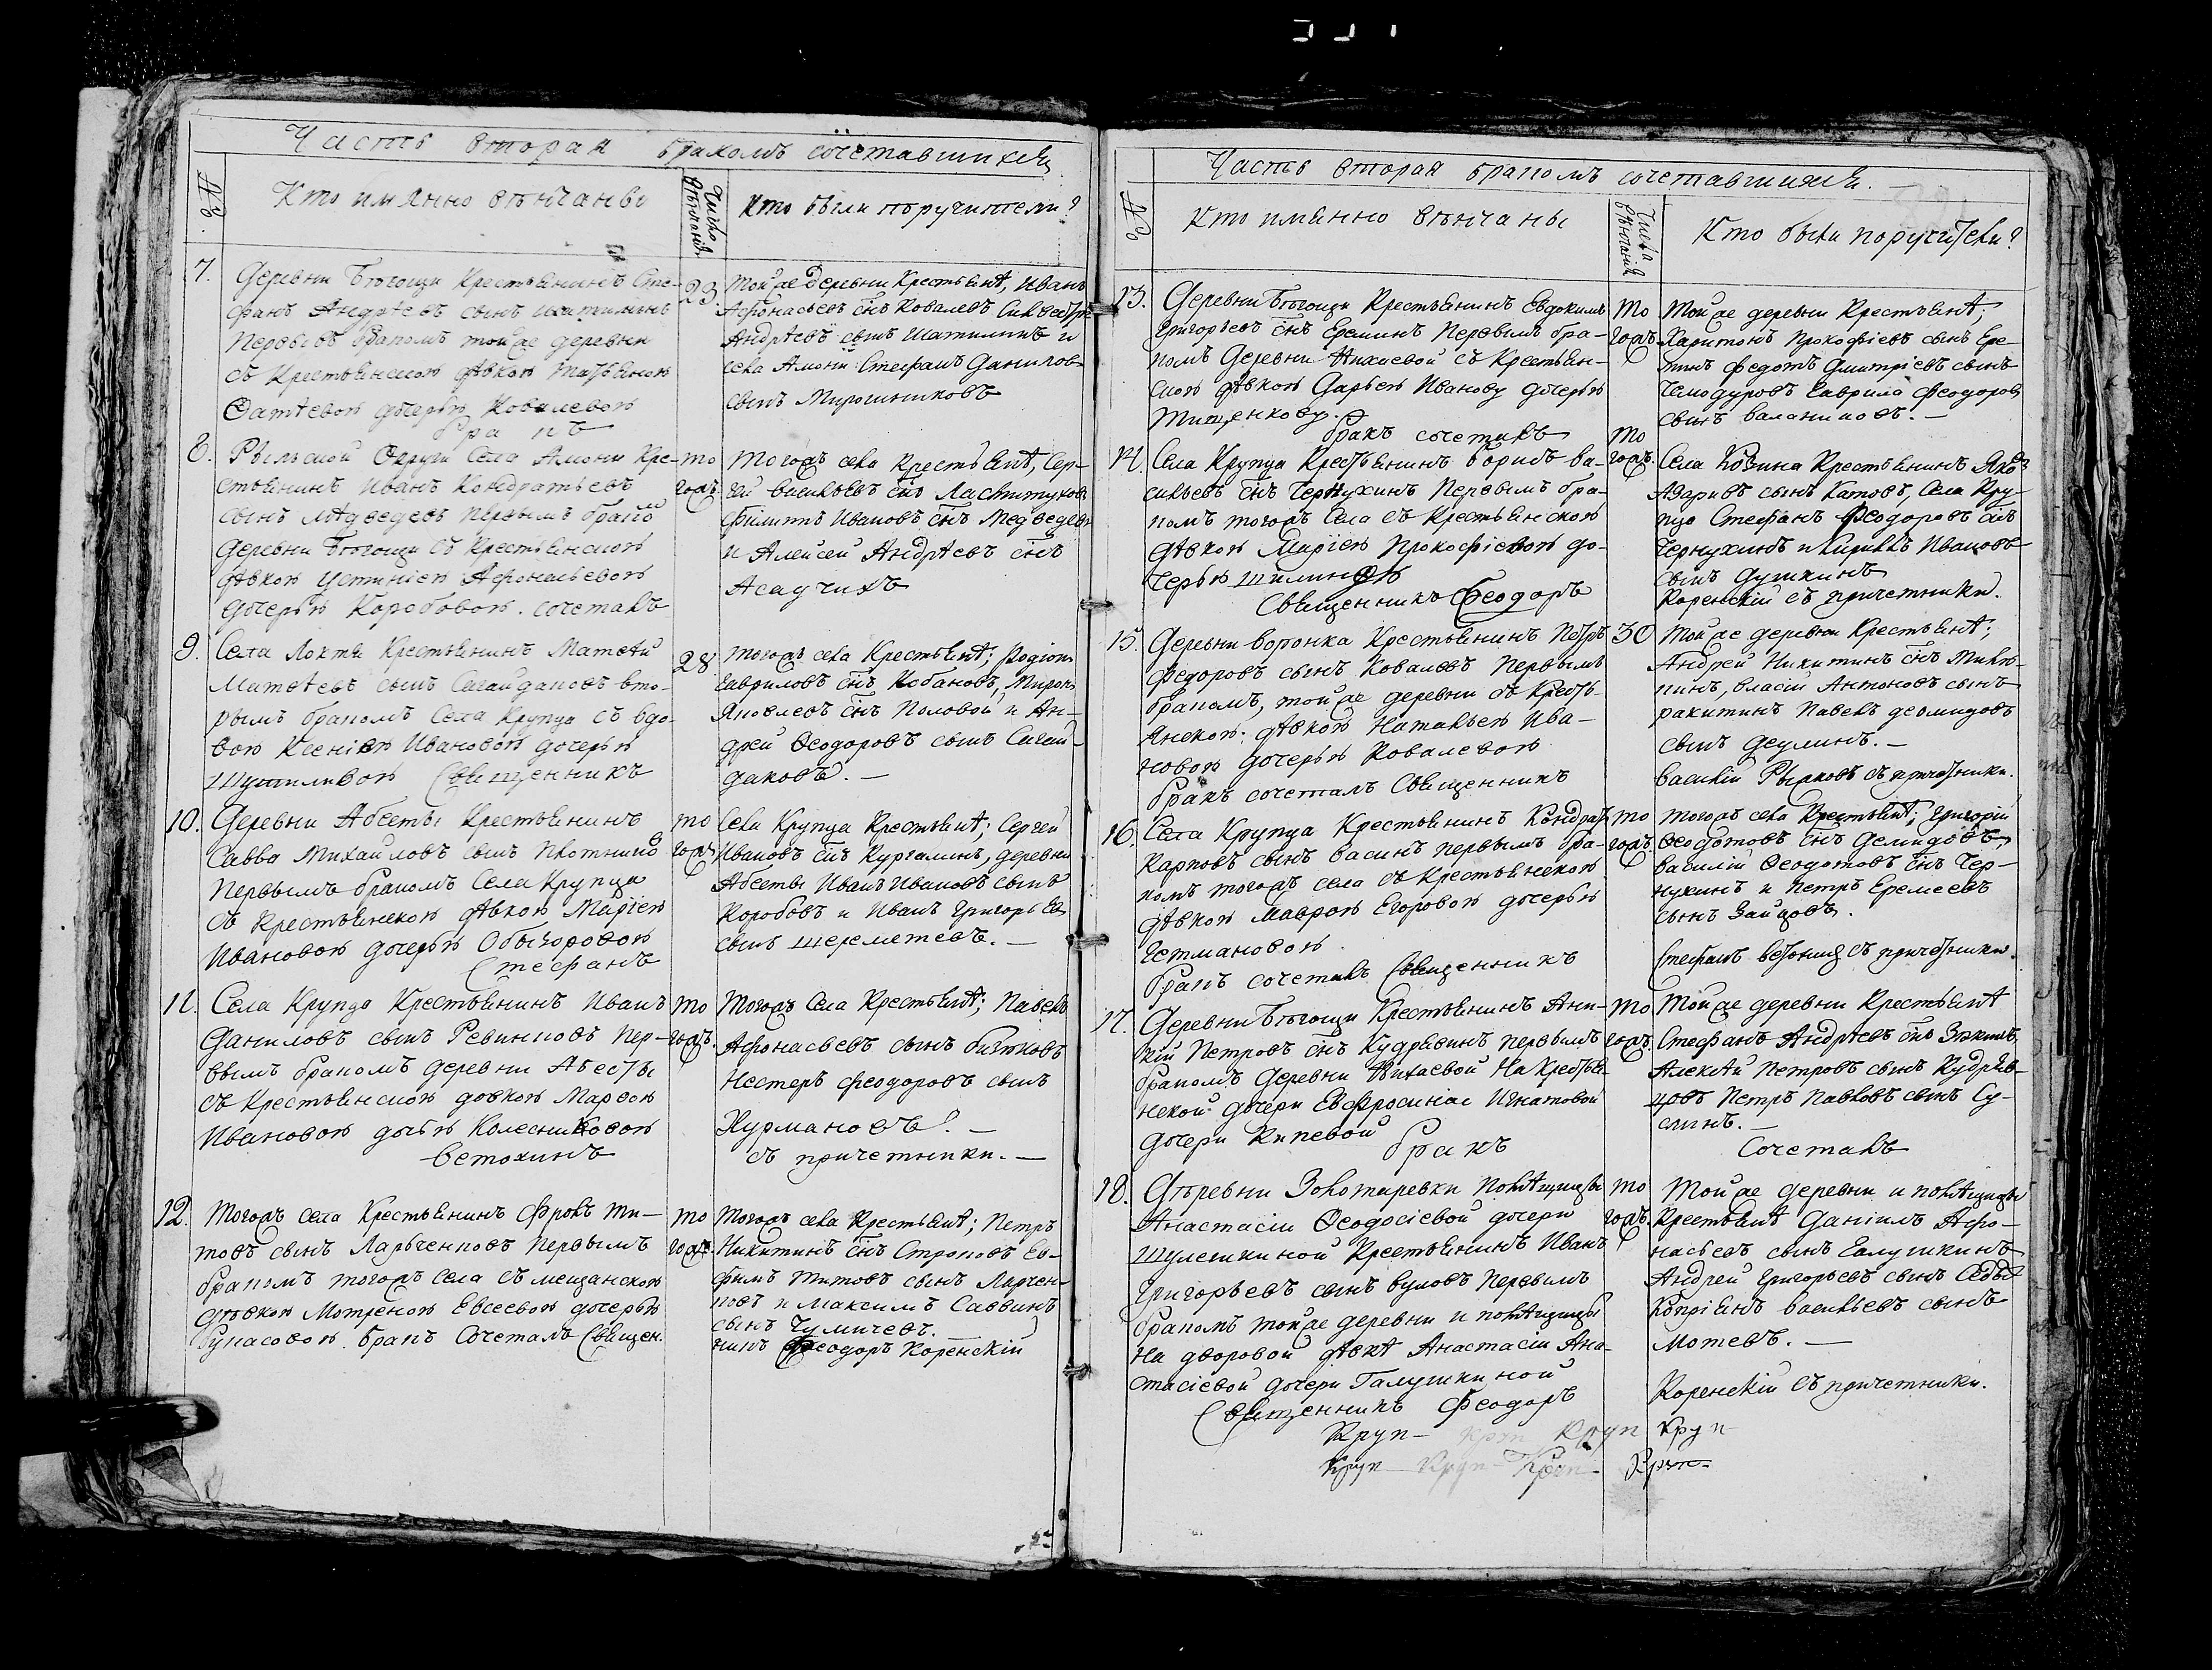 Часть вторая бракомъ сочетавшихся
№.
Кто имянно вѣнчаны
Число вѣнчанія
Кто были поручители?
7.
Деревни Бѣгощи Крестьянинъ Сте-
фанъ Андрѣевъ сынъ Шатилинъ
первымъ бракомъ той же деревни
съ Крестьянскою дѣвкою Татьяною
Фатѣевою дочерью Ковалевою
бракъ
23.
Той же Деревни Крестьянѣ, Иванъ
Афонасьевъ снъ Ковалевъ Сильвестръ
Андрѣевъ сынъ Шатилинъ и
села Амони Стефанъ Даниловъ
сынъ Мирошниковъ
8.
Рыльской Округи Села Амони Кре-
стьянинъ Иванъ Кондратьевъ
сынъ Мѣдведевъ первымъ брако
Деревни Бѣгощи съ Крестьянскою
дѣвкою Устиніею Афонасьевою
дочерью Коробовою. сочеталъ
то
гожъ
Тогожъ села Крестьянѣ, Сер-
гей Васильевъ снъ
Филиппъ Ивановъ снъ Медведевъ
и Алексей Андрѣевъ снъ
Асадчихъ
9.
Села Локтя Крестьянинъ Матѳей
Матѳѣевъ сынъ Сагайдаковъ вто-
рымъ бракомъ Села Крупца съ вдо-
вою Ксеніею Ивановою дочерью
Шутиливою Священникъ
28.
Тогожъ села Крестьянѣ; Родіонъ
Гавриловъ снъ Кобановъ, Миронъ
Яковлевъ снъ Половой и Ан-
дрей Ѳеодоровъ сынъ Сагай-
даковъ. —
10.
Деревни Абесты Крестьянинъ
Савва Михайловъ сынъ Плотнико
Первымъ бракомъ Села Крупца
съ Крестьянскою дѣвкою Маріею
Ивановою дочерью Обыхоровою
Стефанъ
то
гожъ
Села Крупца Крестьянѣ; Сергей
Ивановъ снъ Кургалинъ, деревни
Абесты Иванъ Ивановъ сынъ
Коробовъ и Иванъ Григорьевъ
сынъ Шереметевъ. —
11.
Села Крупца Крестьянинъ Иванъ
Даниловъ сынъ Ревинковъ пер-
вымъ бракомъ деревни Абесты
съ Крестьянскою довкою Марѳою
Ивановою дочью Колесниковою
Ветохинъ
то
гожъ.
Тогожъ Села Крестьянѣ; Павелъ
Афонасьевъ сынъ Бизяковъ
Нестеръ Феодоровъ сынъ
Курмановъ. —
съ причетники. —
12.
Тогожъ села Крестьянинъ Фролъ Ти-
товъ сынъ Ларьченковъ первымъ
бракомъ тогожъ села съ мещанскою
дѣвкою Мотреною Евсеевою дочерью
Бунасовою. бракъ Сочеталъ Священ.
то
гожъ
Тогожъ села Крестьянѣ; Петръ
Никитинъ снъ Строковъ Ев-
фимъ Титовъ сынъ Ларчен-
ковъ и Максимъ Саввинъ
сынъ Чумичевъ.
никъ Феодоръ Коренскій
Часть вторая бракомъ сочетавшихся. —
№
Кто имянно вѣнчаны
Числа вѣнчанія
Кто были поручители?
13.
Деревни Бѣгощи Крестьянинъ Евдокимъ
Григорьевъ снъ Ереминъ Первымъ бра-
комъ Деревни Анихеевой съ Крестьян-
скою дѣвкою Дарьею Иванову дочерью
Тищенкову.
бракъ сочеталъ
То
гожъ.
Той же деревни Крестьянѣ;
Харитонъ Прокофіевъ сынъ Ере-
минъ Федотъ Дмитріевъ сынъ
Чемодуровъ Гаврило Феодоровъ
сынъ Балакиковъ. —
14.
Села Крупца Крестьянинъ Борисъ Ва-
сильевъ снъ Чернухинъ Первымъ бра-
комъ тогожъ Села съ Крестьянскою
дѣвкою Маріею Прокофіевою до-
черью Шилиною
Священникъ Феодоръ
то
гожъ.
Села Козина Крестьянинъ Яковъ
Азаривъ сынъ Катовъ, Села Кру-
пца Стефанъ Феодоровъ снъ
Чернухинъ и Кириллъ Ивановъ
сынъ Душкинъ
Коренскій съ причетники.
15.
Деревни Воронка Крестьянинъ Петръ
Федоровъ сынъ Ковалевъ первымъ
бракомъ, той же деревни съ Кресть-
янскою дѣвкою Натальею Ива-
новою дочерью Ковалевою
бракъ сочеталъ Священникъ
30
Той же деревни Крестьянѣ;
Андрей Никитинъ снъ Микъ-
нинъ, Власій Антоновъ сынъ
Ракитинъ Павелъ Деомидовъ
сынъ Деулинъ. —
Василій Рыжковъ съ причетники.
16.
Села Крупца Крестьянинъ Кондрат
Карповъ сынъ Васинъ первымъ бра-
комъ тогожъ села съ Крестьянскою
дѣвкою Маврою Егоровою дочерью
Гетмановою.
бракъ сочеталъ Священникъ
то
гожъ.
Тогожъ села Крестьянѣ; Григорій
Ѳеодотовъ снъ Демидовъ,
Василій Ѳеодотовъ снъ Чер-
нухинъ и Петръ Еремеевъ
сынъ Зайцовъ.
Стефанъ Ветохинъ съ причетники.
17.
Деревни Бѣгощи Крестьянинъ Ани-
кій Петровъ снъ Кудрявинъ первымъ
бракомъ Деревни Анихеевой На Крестья-
нской дочери Евфросиніе Игнатовой
дочери Рипевой
бракъ
То
гожъ.
Той же деревни Крестьянѣ
Стефанъ Андрѣевъ снъ
Алексѣй Петровъ сынъ Кудряв-
цовъ Петръ Павловъ сынъ Су-
слинъ. —
Сочеталъ
18.
Дѣревни Золотаревки Помѣщицы
Анастасіи Ѳеодосіевой дочери
Шулешкиной Крестьянинъ Иванъ
Григорьевъ сынъ Вуковъ первымъ
бракомъ той же деревни и помѣщицы
На дворовой дѣвкѣ Анастасіи Ана-
стасіевой дочери Галушкиной
Священникъ Феодоръ
то
гожъ.
Той же деревни и помѣщицы
Крестьянѣ Даніилъ Афо-
насьевъ сынъ Галушкинъ
Андрей Григорьевъ сынъ Седых
Кипріянъ Васильевъ сынъ
Мотевъ. —
Коренскій съ причетники.
Круп- Круп Круп Круп
Круп- Круп- Круп- Круп-